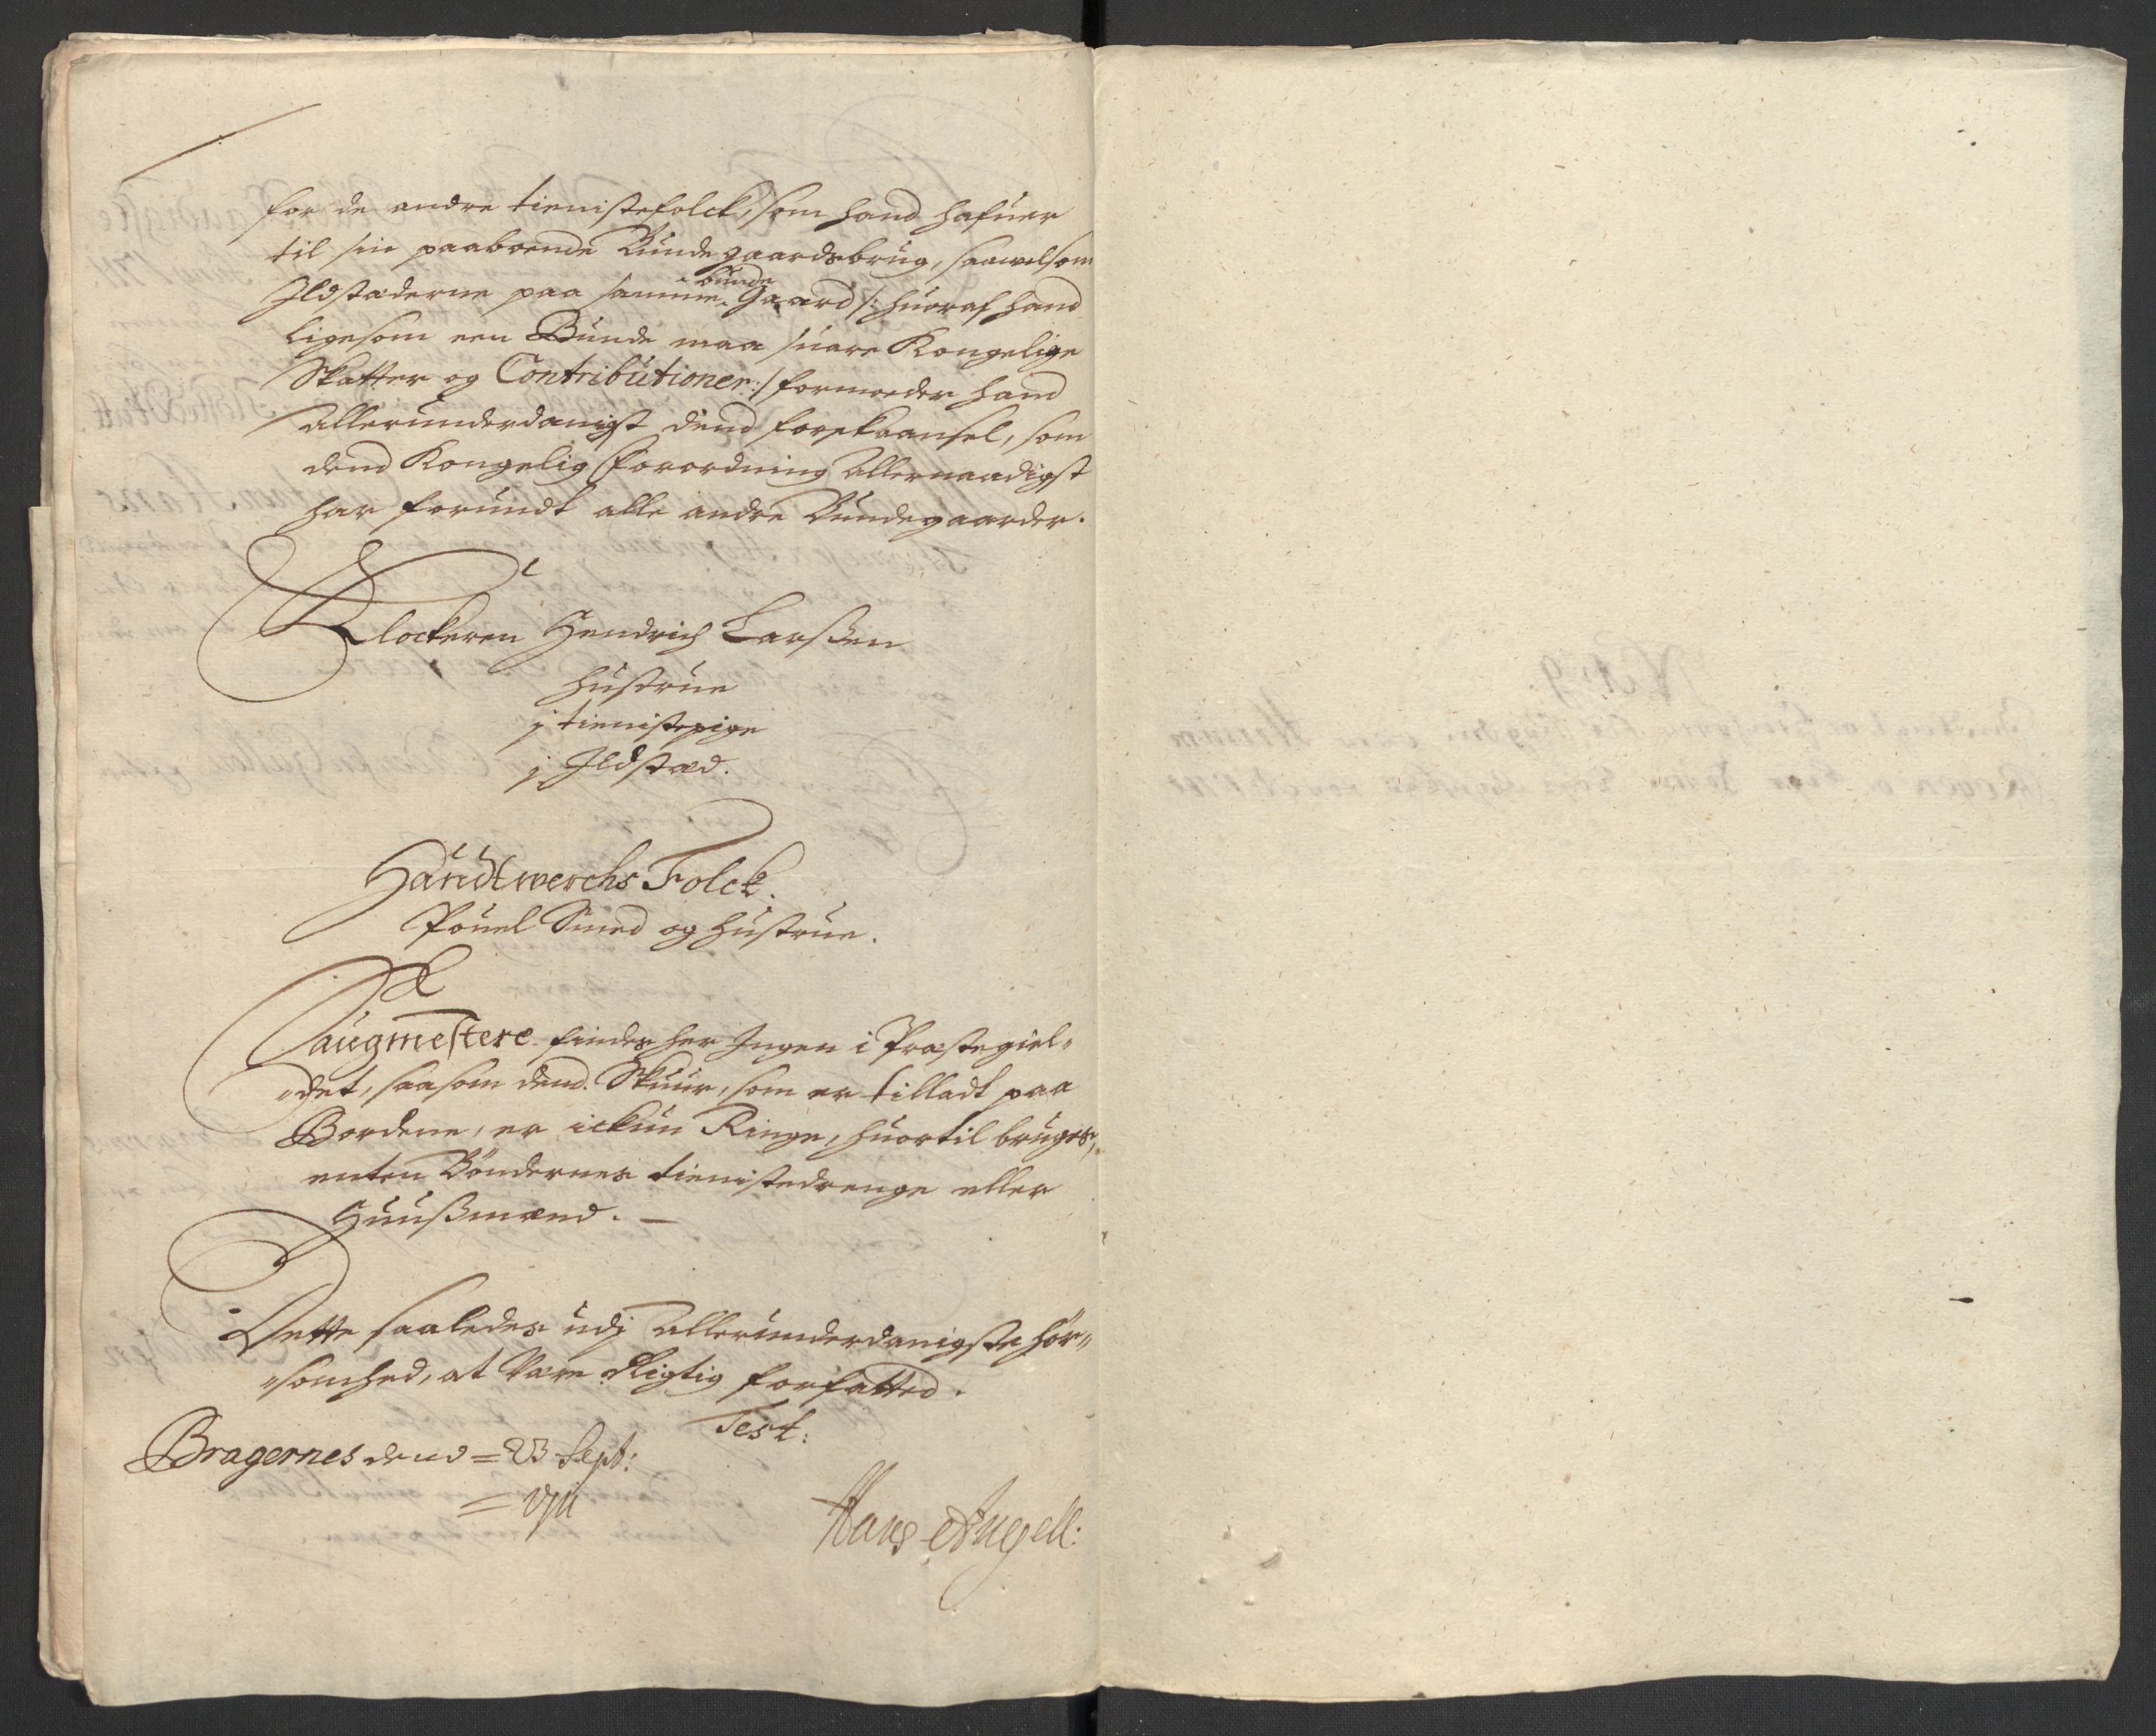 for de andre tienistefolck, som hand hafuer
til sin paaboende Bunde gaardsbrug, saavelsom
Ildstæderne paa samme bunde Gaard /: huoraf hand
ligesom een Bunde maa suare Kongelige
Skatter og Contributioner :/ formoeder hand
allerunderdanigst dend forskaansel, som
dend Kongelig Forordning allernaadigst
har forundt alle andre Bundegaarder.
Klockeren Hendrich Larssen
hustrue
j tienistepige
j Ildstæd.
Handtwerchs Folck.
Pouel Smed og hustrue.
Saugmestere findes her Ingen i Præstegiel-
det, saasom dend Skuur, som er tilladt paa
Bordene, er ickun Ringe, huortil bruges,
enten Böndernes tienistedrenge eller
Huussmænd. —
Dette saaledes udj allerunderdanigste hör-
somhed, at være Rigtig forfatted.
Test:
Bragernes dend = 23 Sept:
= 1711
Hans Angell: